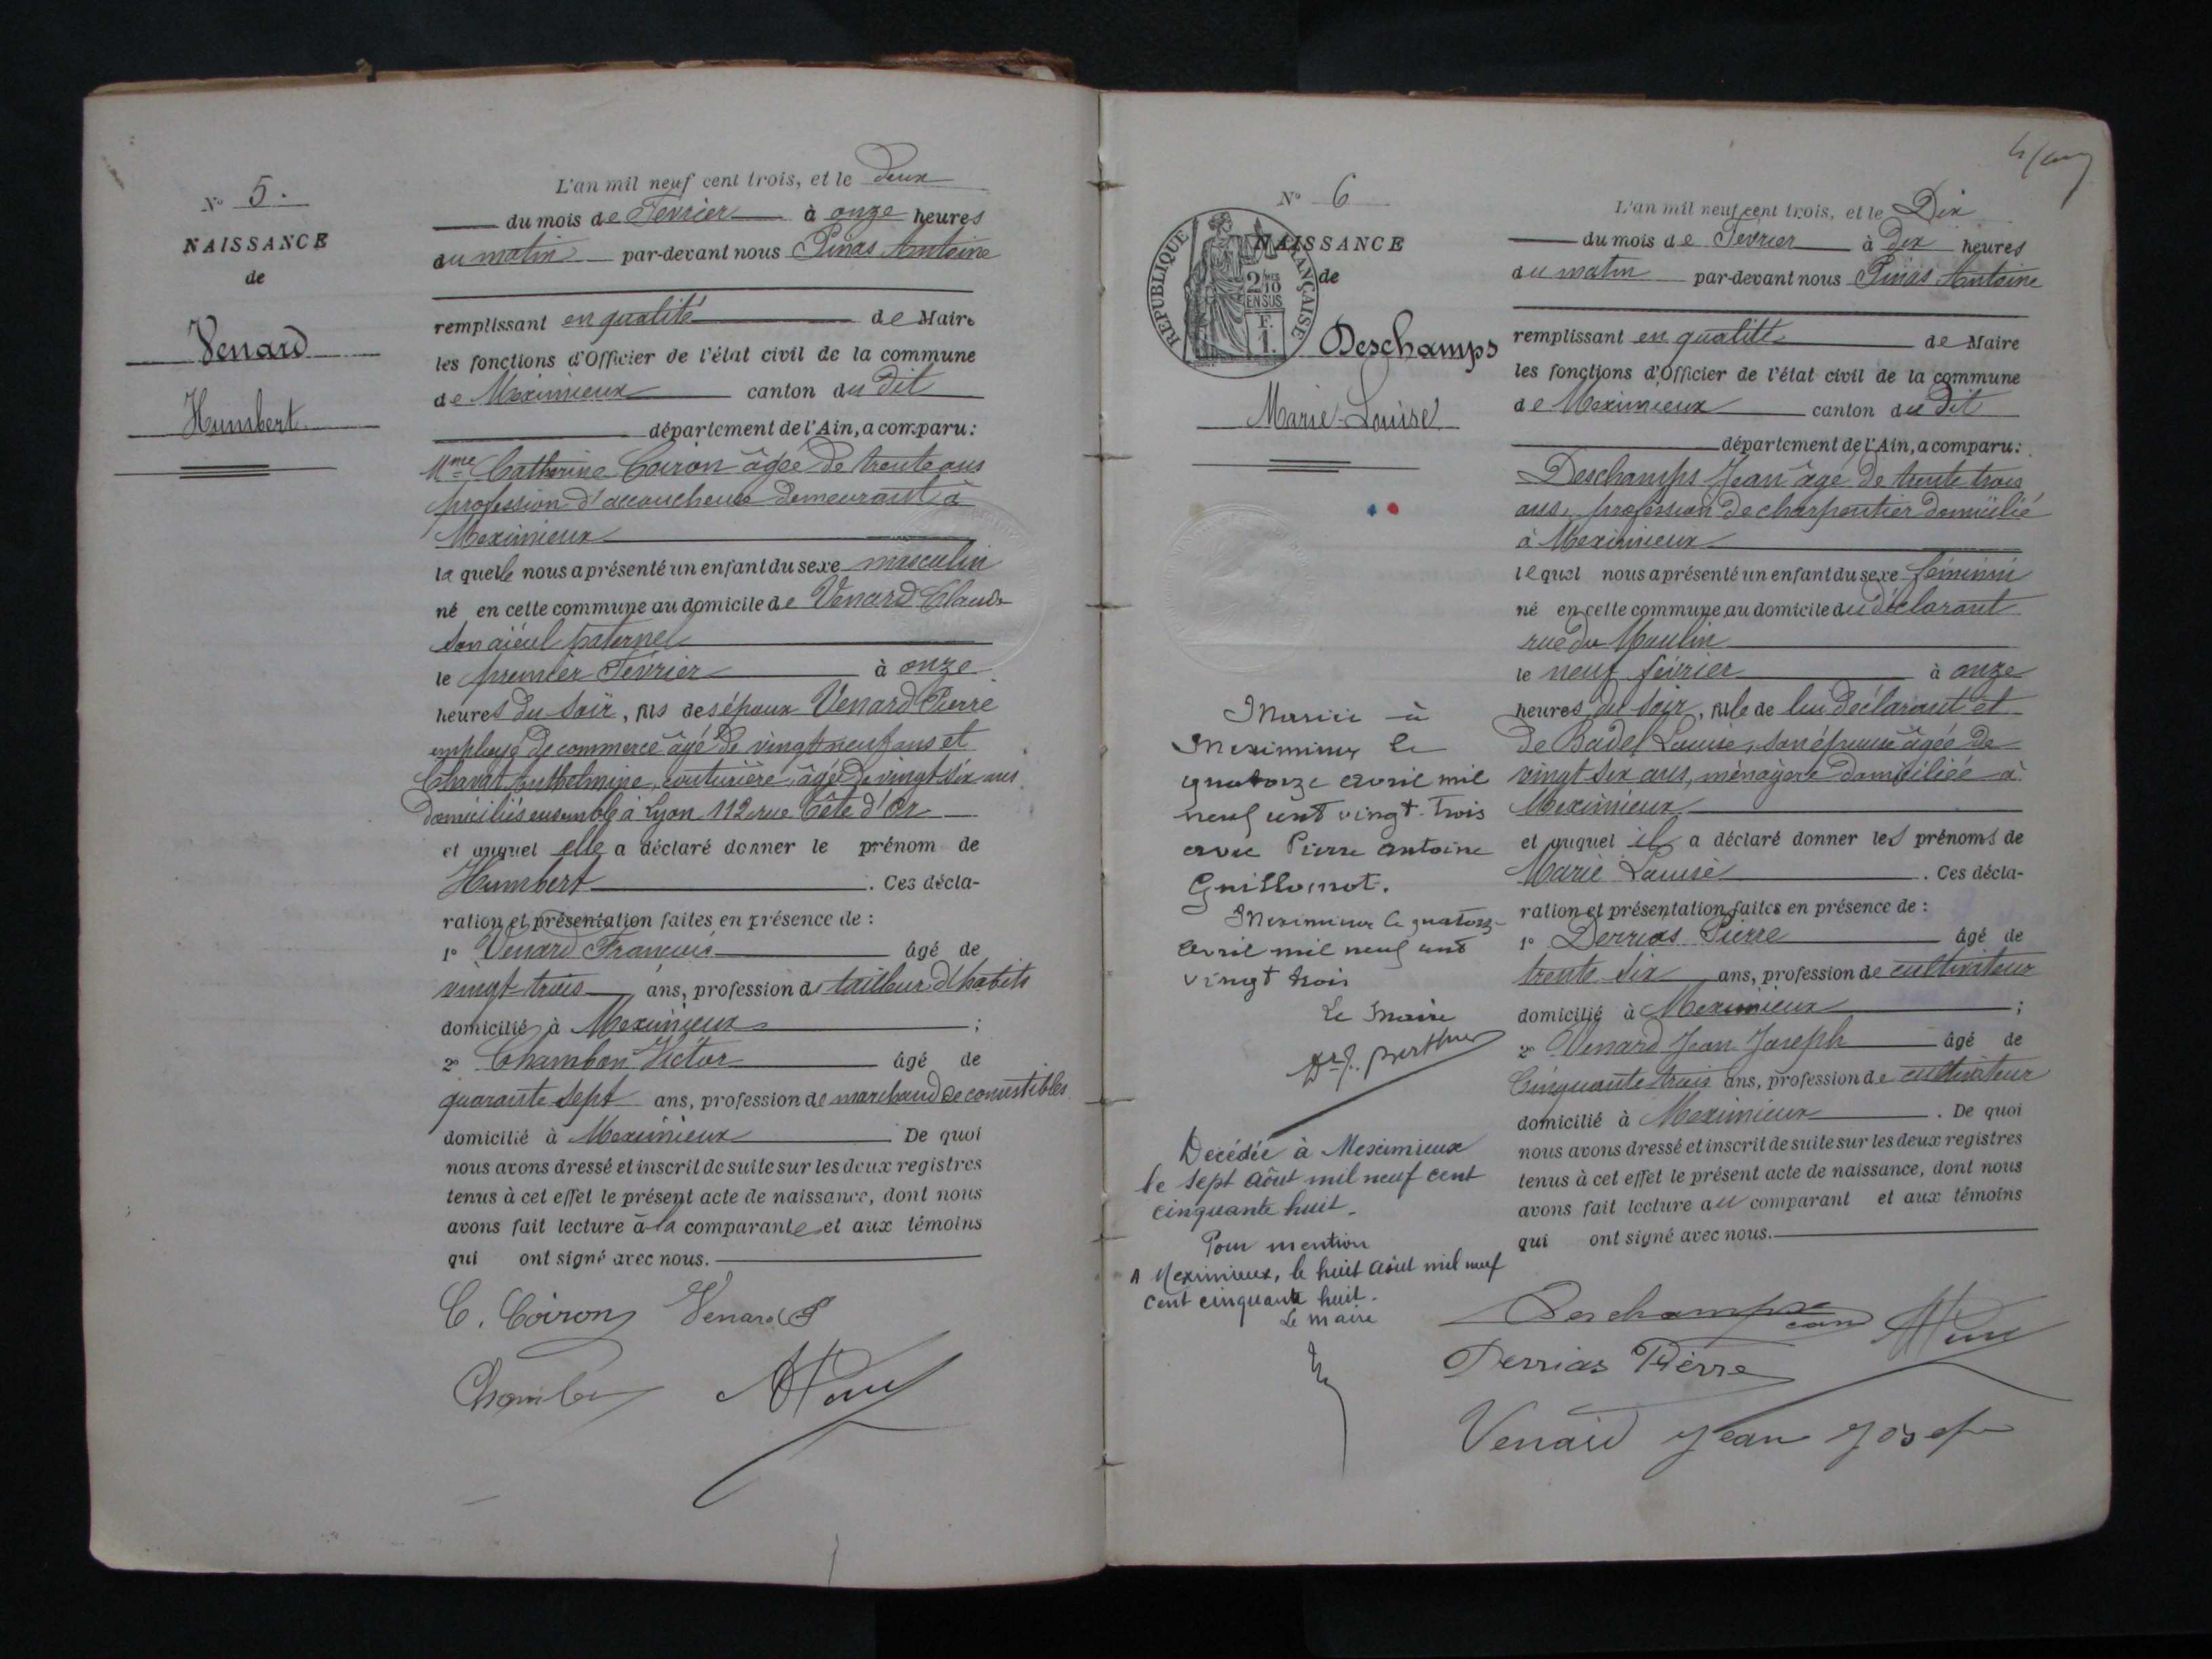 N° 5.
NAISSANCE
de
Venard
Humbert
L'an mil neuf cent trois, et le deux
du mois de Février à onze heures
du matin par-devant nous Pinas Antoine
remplissant en qualité de Maire
les fonctions d'Officier de l'état civil de la commune
de Meximieux canton du dit
département de l'Ain, a comparu :
Mme Catherine Coiron âgée de trente ans
profession d'accoucheuse demeurant à
Meximieux
la quelle nous a présenté un enfant du sexe masculin
né en cette commune au domicile de Venard Claude
son aïeul paternel
le premier Février à onze
heures du soir, fils des époux Venard Pierre
employé de commerce âgé de vingt neuf ans et
Chavat Anthelmine, couturière, âgée de vingt six ans
domiciliés ensemble à Lyon 112 rue Tête d'Or
et auquel elle a déclaré donner le prénom de
Humbert. Ces décla-
ration et présentation faites en présence de :
1° Venard Francois âgé de
vingt-trois ans, profession de tailleur d'habits
domicilié à Meximieux ;
2° Chambon Victor âgé de
quarante sept ans, profession de marchand de comestibles
domicilié à Meximieux. De quoi
nous avons dressé et inscrit de suite sur les deux registres
tenus à cet effet le présent acte de naissance, dont nous
avons fait lecture à la comparante et aux témoins
qui ont signé avec nous.
C. Coiron Venard F
N° 6
NAISSANCE
de
REPUBLIQUE FRANÇAISE
2/10
EN SUS
F.
1.
Deschamps
Marie-Louise
Mariée à
Meximieux le
quatorze avril mil
neuf cent vingt-trois
avec Pierre Antoine
Guillomot.
Meximieux le quatorze
avril mil neuf cent
vingt trois
Le Maire
Décédée à Meximieux
le sept août mil neuf cent
cinquante huit.
Pour mention
A Meximieux, le huit août mil neuf
cent cinquante huit.
Le maire
L'an mil neuf cent trois, et le Dix
du mois de Février à Dix heures
du matin par-devant nous Pinas Antoine
remplissant en qualité de Maire
les fonctions d'Officier de l'état civil de la commune
de Meximieux canton du dit
département de l'Ain, a comparu :
Deschamps Jean âgé de trente trois
ans, profession de charpentier domicilié
à Meximieux
lequel nous a présenté un enfant du sexe féminin
né en cette commune au domicile du déclarant
rue du Moulin
le neuf février à onze
heures du soir, fille de lui déclarant et
de Badel Louise, son épouse âgée de
vingt six ans, ménagère domiciliée à
Meximieux
et auquel il a déclaré donner les prénoms de
Marie Louise. Ces décla-
ration et présentation faites en présence de :
1° Derrias Pierre âgé de
trente six ans, profession de cultivateur
domicilié à Meximieux ;
2° Venard Jean Joseph âgé de
Cinquante trois ans, profession de cultivateur
domicilié à Meximieux. De quoi
nous avons dressé et inscrit de suite sur les deux registres
tenus à cet effet le présent acte de naissance, dont nous
avons fait lecture au comparant et aux témoins
qui ont signé avec nous.
Deschamps Jean
Derrias Pierre
Venard Jean Josef